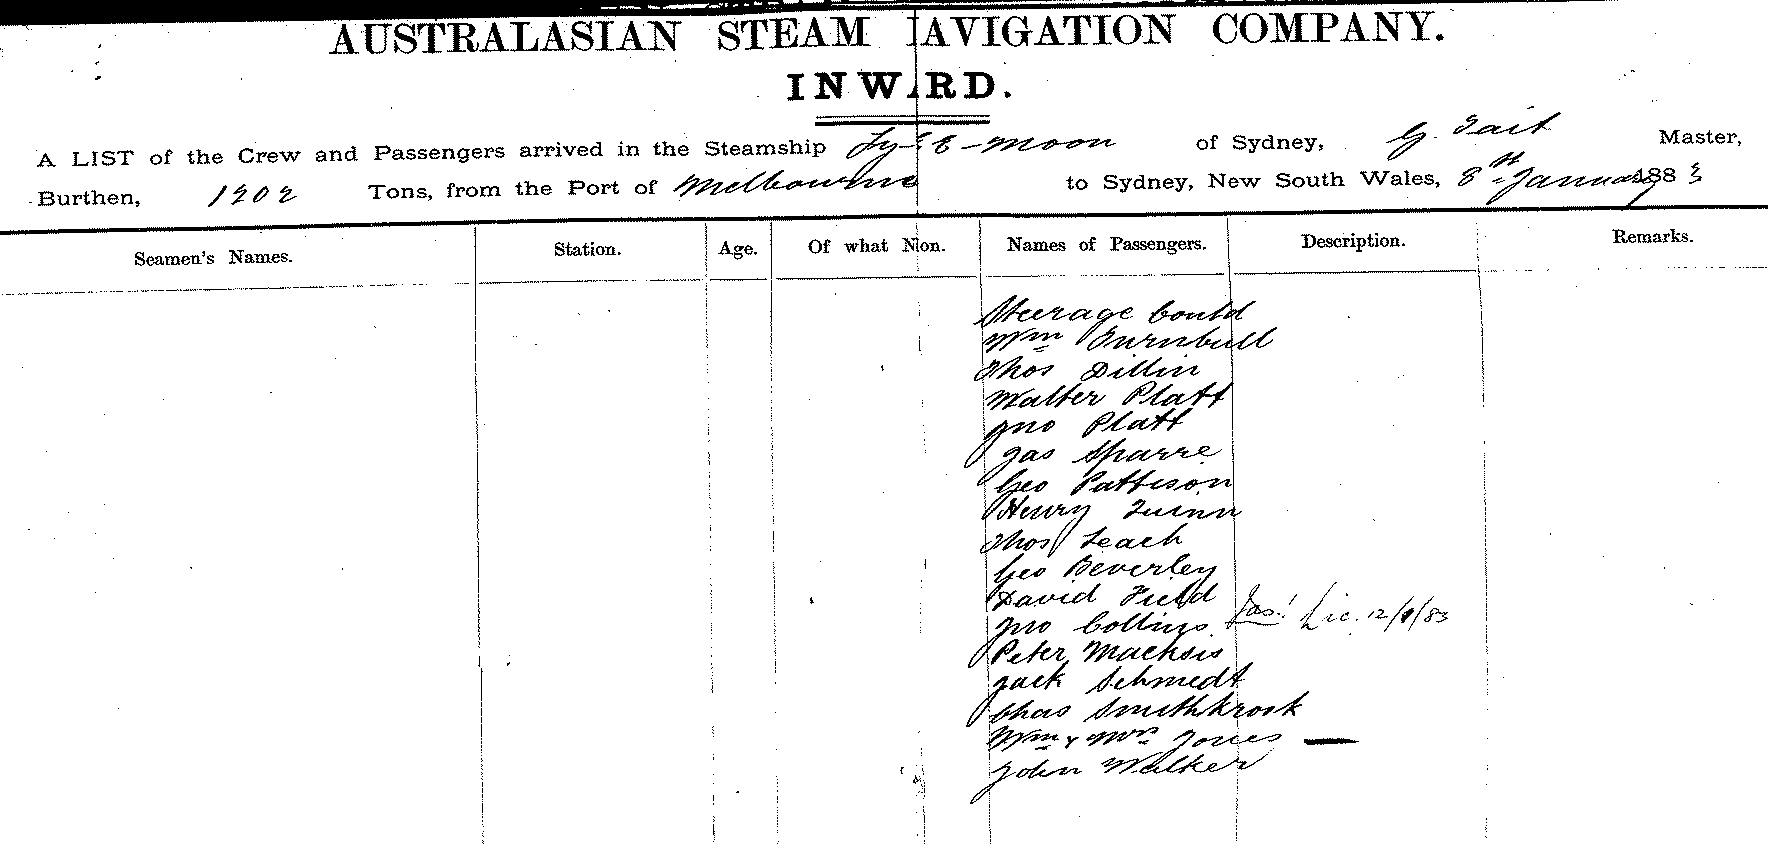 AUSTRALASIAN STEAM NAVIGATION COMPANY.
INWARD.
A LIST of the Crew and Passengers arrived in the Steamship Ly-E-Moon of Sydney, G. Tait Master,
Burthen, 1202 Tons, from the Port of Melbourne to Sydney, New South Wales, 8th January 1883
Seamen's Names. Station. Age. Of what Nion. Names of Passengers. Description. Remarks.
Steerage Contd
Wm Turnbull
Thos Dillin
Walter Platt
Jno Platt
Jas Sparre
Geo Pattison
Henry Quinn
Thos Leach
Geo Beverley
David Field
Jno Collings Lic. 12/1/83
Peter Macksis
Jack Schmedt
Chas Smithkrook
Wm & Mrs Jones —
John Walker